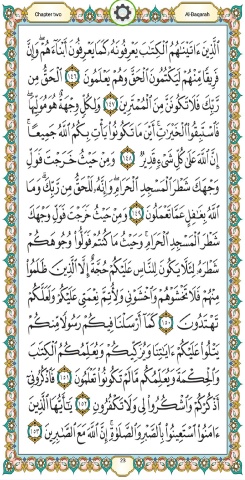 Chapter two
Al-Baqarah
الَّذِينَ ءَاتَيْنَٰهُمُ الْكِتَٰبَ يَعْرِفُونَهُۥ كَمَا يَعْرِفُونَ أَبْنَآءَهُمْ وَإِنَّ
فَرِيقًا مِّنْهُمْ لَيَكْتُمُونَ الْحَقَّ وَهُمْ يَعْلَمُونَ ١٤٦ الْحَقُّ مِن
رَّبِّكَ فَلَا تَكُونَنَّ مِنَ الْمُمْتَرِينَ ١٤٧ وَلِكُلٍّ وِجْهَةٌ هُوَ مُوَلِّيهَا
فَاسْتَبِقُوا الْخَيْرَٰتِ أَيْنَ مَا تَكُونُوا يَأْتِ بِكُمُ اللَّهُ جَمِيعًا
إِنَّ اللَّهَ عَلَىٰ كُلِّ شَىْءٍ قَدِيرٌ ١٤٨ وَمِنْ حَيْثُ خَرَجْتَ فَوَلِّ
وَجْهَكَ شَطْرَ الْمَسْجِدِ الْحَرَامِ وَإِنَّهُۥ لَلْحَقُّ مِن رَّبِّكَ وَمَا
اللَّهُ بِغَٰفِلٍ عَمَّا تَعْمَلُونَ ١٤٩ وَمِنْ حَيْثُ خَرَجْتَ فَوَلِّ وَجْهَكَ
شَطْرَ الْمَسْجِدِ الْحَرَامِ وَحَيْثُ مَا كُنتُمْ فَوَلُّوا وُجُوهَكُمْ
شَطْرَهُۥ لِئَلَّا يَكُونَ لِلنَّاسِ عَلَيْكُمْ حُجَّةٌ إِلَّا الَّذِينَ ظَلَمُوا
مِنْهُمْ فَلَا تَخْشَوْهُمْ وَاخْشَوْنِى وَلِأُتِمَّ نِعْمَتِى عَلَيْكُمْ وَلَعَلَّكُمْ
تَهْتَدُونَ ١٥٠ كَمَآ أَرْسَلْنَا فِيكُمْ رَسُولًا مِّنكُمْ
يَتْلُوا عَلَيْكُمْ ءَايَٰتِنَا وَيُزَكِّيكُمْ وَيُعَلِّمُكُمُ الْكِتَٰبَ
وَالْحِكْمَةَ وَيُعَلِّمُكُم مَّا لَمْ تَكُونُوا تَعْلَمُونَ ١٥١ فَاذْكُرُونِىٓ
أَذْكُرْكُمْ وَاشْكُرُوا لِى وَلَا تَكْفُرُونِ ١٥٢ يَٰٓأَيُّهَا الَّذِينَ
ءَامَنُوا اسْتَعِينُوا بِالصَّبْرِ وَالصَّلَوٰةِ إِنَّ اللَّهَ مَعَ الصَّٰبِرِينَ ١٥٣